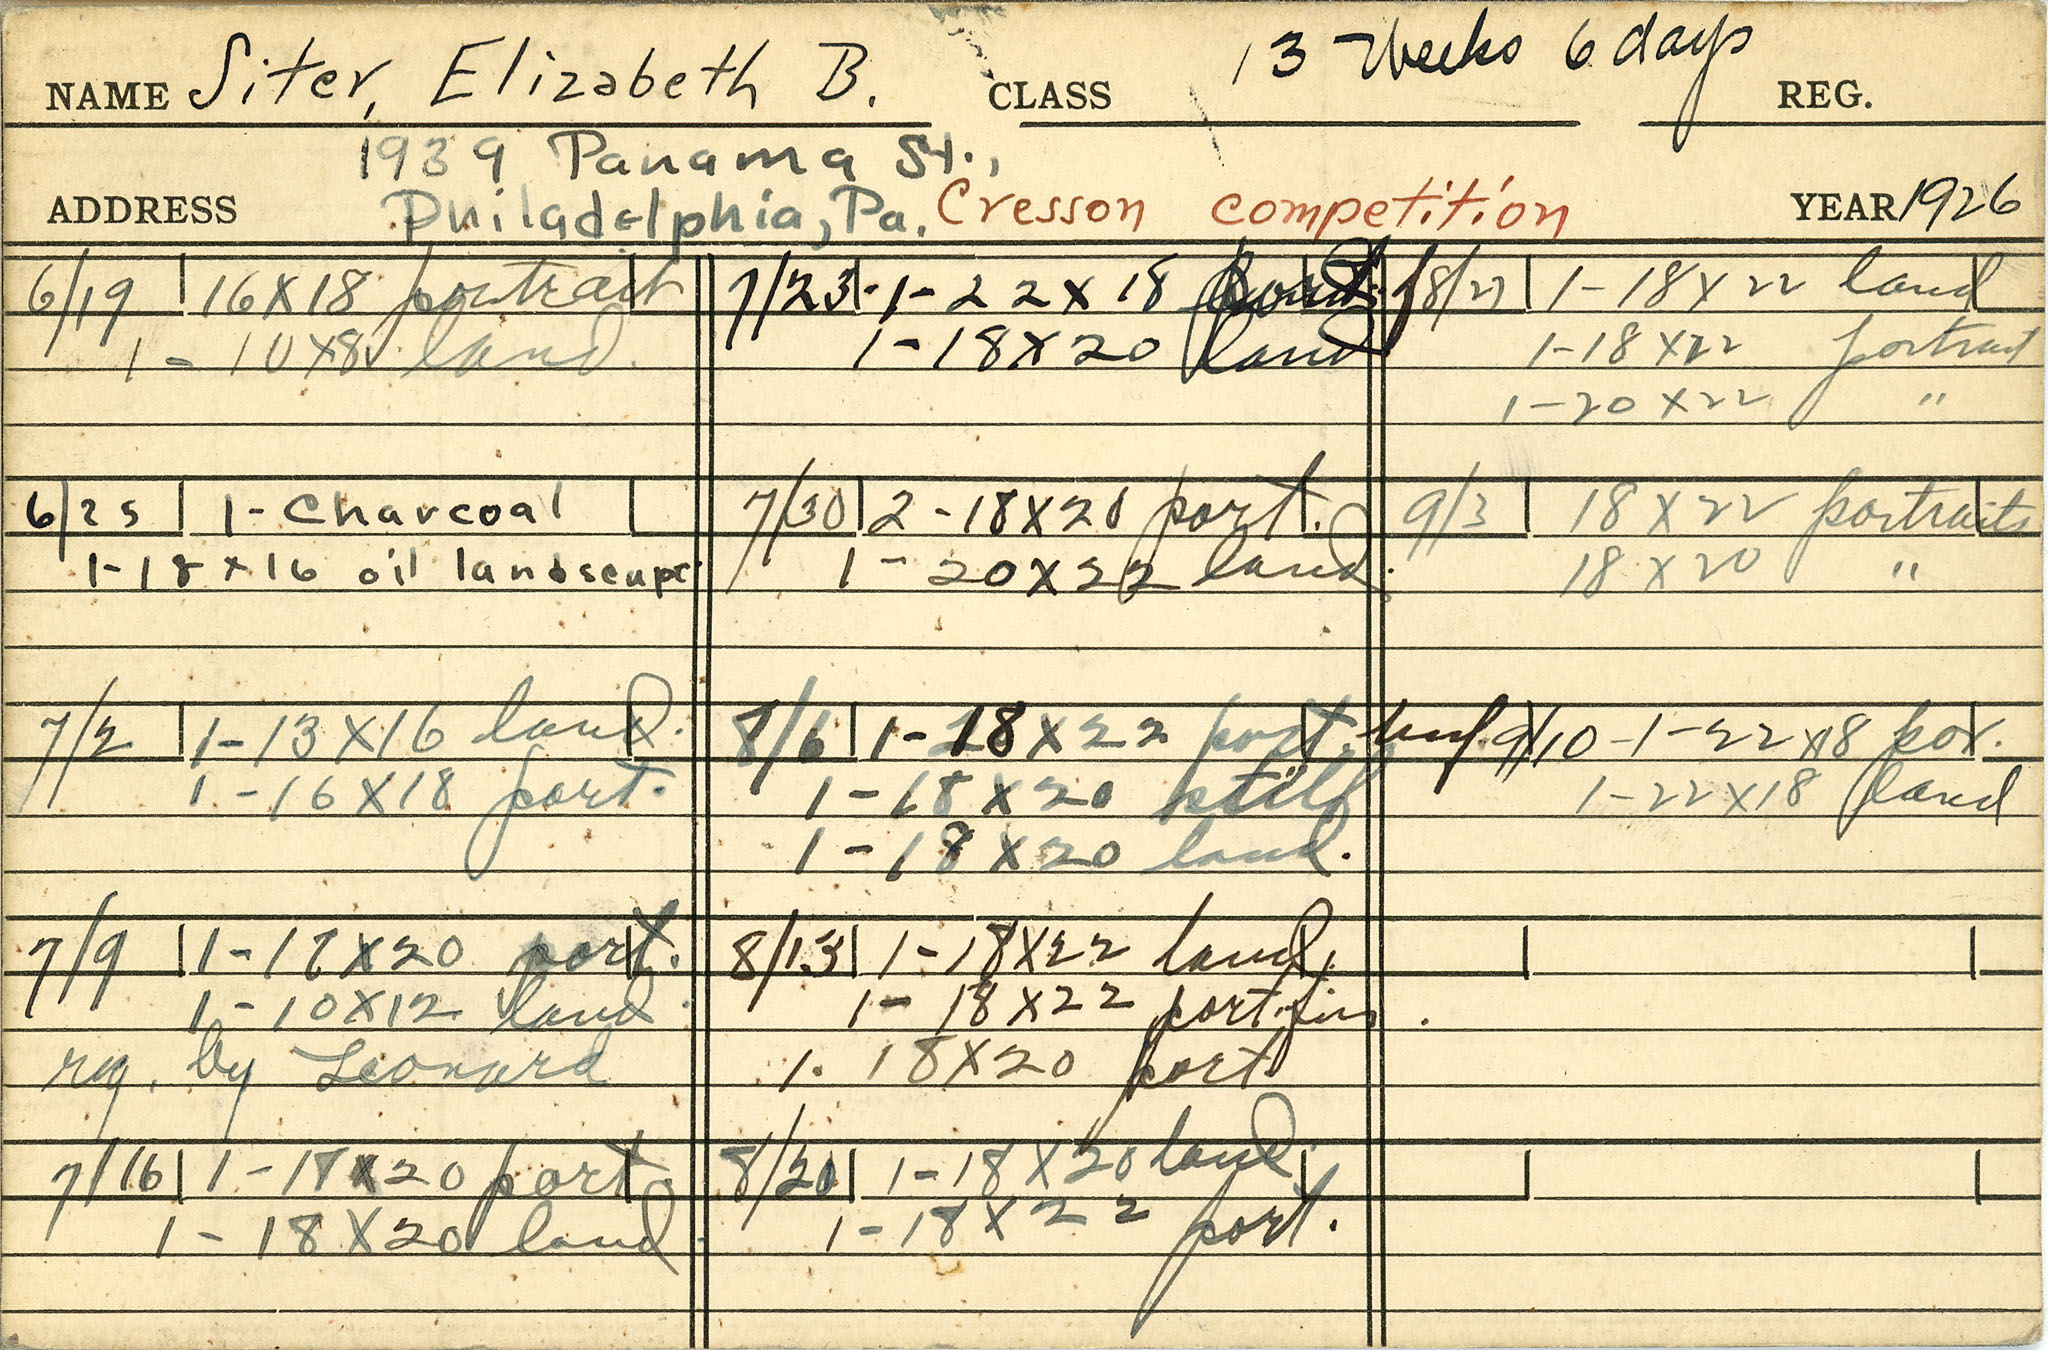 NAME Siter, Elizabeth B. CLASS 13 Weeks 6 days REG.
1939 Panama St.,
ADDRESS Philadelphia, Pa. Cresson competition YEAR 1926
6/19 16X18 portrait
1 - 10X8 land.
6/25 1- Charcoal
1-18 x 16 oil landscape
7/2 1-13X16 land.
1-16X18 port.
7/9 1-17X20 port.
1-10X12 land.
rg. by Leonard
7/16 1-18X20 port.
1-18X20 land.
7/23 1-22X18 port.
1-18X20 land
7/30 2-18X20 port.
1-20X22 land.
8/6 1-18X22 port. unf.
1-18X20 still
1-18X20 land.
8/13 1-18X22 land.
1-18X22 port. fin.
1. 18X20 port
8/20 1-18X20 land.
1-18X22 port.
8/27 1-18X22 land
1-18X22 portrait
1-20X22 "
9/3 18X22 portraits
18X20 "
9/10-1-22X18 por.
1-22X18 land